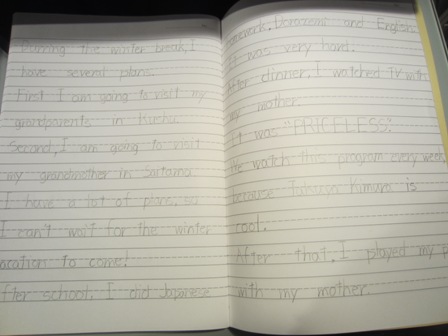 During the winter break, I
have several plans.
First I am going to visit my
grandparents in
Second, I am going to visit
my grandmother in Saitama
I have a lot of plans, so
I can't wait for the winter
vacation to come!
After school. I did Japanese
homework. and English.
It was very hard.
After dinner, I watched TV with
my mother.
It was "PRICELESS".
We watch this program every week,
because Kimura is
cool.
After that. I played my
with my mother.